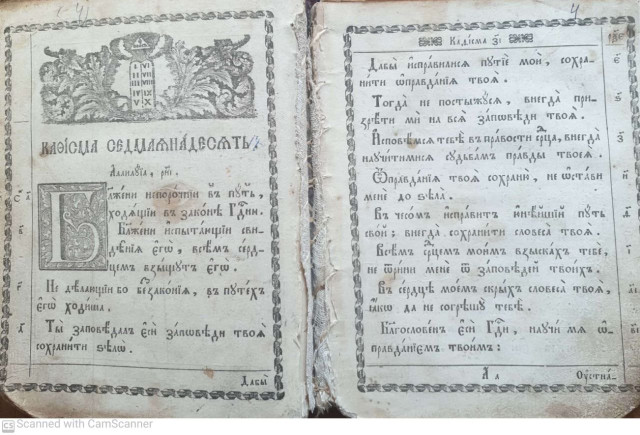 I II III IV V VI VII VIII IX X
КАѲІСМА СЕДМАѦНАДЕСѦТЬ.
Аллилꙋіа, рм҃і.
Бл҃жени непорочніи въ пꙋть,
ходѧщіи въ законѣ Гд҃ни.
Бл҃жени испытающіи сви-
дѣніѧ є҆гѡ̀, всѣмъ серд-
цемъ взыщꙋтъ є҆гѡ̀.
Не дѣлающіи бо беззаконіѧ, въ пꙋтехъ
є҆гѡ̀ ходиша.
Ты заповѣдалъ є҆сѝ заповѣди твоѧ̑
сохранити ѕѣлѡ̀.
Дабы̀
Каѳісма з҃і
Дабы̀ и҆справилисѧ пꙋтїѐ моѝ, сохра-
нити ѡ҆правданїѧ твоѧ̑.
Тогда̀ не постыжꙋсѧ, внегда̀ при-
зрѣти мѝ на всѧ̑ заповѣди твоѧ̑.
И҆сповѣмсѧ тебѣ̀ въ правости ср҃ца, внегда̀
наꙋчитимисѧ сꙋдьбамъ правды твоеѧ̀.
Ѡ҆правданїѧ твоѧ̑ сохраню̀, не ѡ҆стави
менѐ до ѕѣла̀.
Въ чесомъ и҆справитъ ю҆нѣйшїй пꙋть
свой: внегда̀ сохранити словеса̀ твоѧ̑.
Всѣмъ ср҃цемъ моимъ взыскахъ тебѐ,
не ѿрини менѐ ѿ заповѣдей твоихъ.
Въ сердцѣ моемъ скрыхъ словеса̀ твоѧ̑,
ꙗ҆кѡ да не согрѣшꙋ̀ тебѣ̀.
Благословенъ є҆сѝ Гд҃и, наꙋчи мѧ ѡ҆-
правданїемъ твоимъ:
А а
Оустна-
CS Scanned with CamScanner